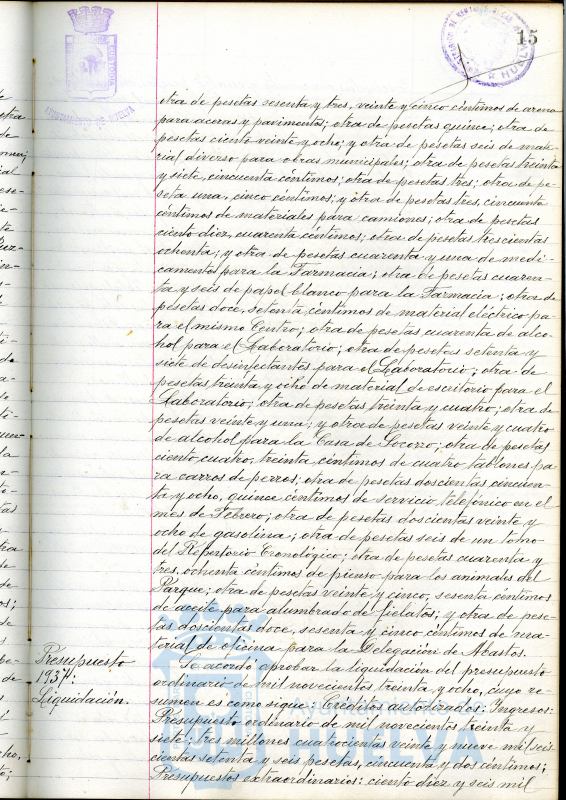 15
AYUNTAMIENTO DE HUELVA
otra de pesetas sesenta y tres, veinte y cinco céntimos de arena
para aceras y pavimentos; otra de pesetas quince; otra de
pesetas ciento veinte y ocho; y otra de pesetas seis de mate-
rial diverso para obras municipales; otra de pesetas treinta
y siete, cincuenta céntimos; otra de pesetas tres; otra de pe-
seta una, cinco céntimos; y otra de pesetas tres, cincuenta
céntimos de materiales para camiones; otra de pesetas
ciento diez, cuarenta céntimos; otra de pesetas trescientas
ochenta; y otra de pesetas cuarenta y una de medi-
camentos para la Farmacia; otra de pesetas cuaren-
ta y seis de papel blanco para la Farmacia; otra de
pesetas doce, setenta céntimos de material eléctrico pa-
ra el mismo Centro; otra de pesetas cuarenta de alco-
hol para el Laboratorio; otra de pesetas setenta y
siete de desinfectantes para el Laboratorio; otra de
pesetas treinta y ocho de material de escritorio para el
Laboratorio; otra de pesetas treinta y cuatro; otra de
pesetas veinte y una; y otra de pesetas veinte y cuatro
de alcohol para la Casa de Socorro; otra de pesetas
ciento cuatro, treinta céntimos de cuatro tablones pa-
ra carros de perros; otra de pesetas doscientas cincuen-
ta y ocho, quince céntimos de servicio telefónico en el
mes de Febrero; otra de pesetas doscientas veinte y
ocho de gasolina; otra de pesetas seis de un tomo
del Repertorio Cronológico; otra de pesetas cuarenta y
tres, ochenta céntimos de pienso para los animales del
Parque; otra de pesetas veinte y cinco, sesenta céntimos
de aceite para alumbrado de fielatos; y otra de pese-
tas doscientas doce, sesenta y cinco céntimos de ma-
terial de oficina para la Delegación de Abastos.
Presupuesto
1937:
Liquidación.
Se acordó aprobar la liquidación del presupuesto
ordinario de mil novecientos treinta y ocho, cuyo re-
sumen es como sigue: Créditos autorizados: Ingresos:
Presupuesto ordinario de mil novecientos treinta y
siete: tres millones cuatrocientas veinte y nueve mil seis-
cientas setenta y seis pesetas, cincuenta y dos céntimos;
Presupuestos extraordinarios: ciento diez y seis mil
HUELVA